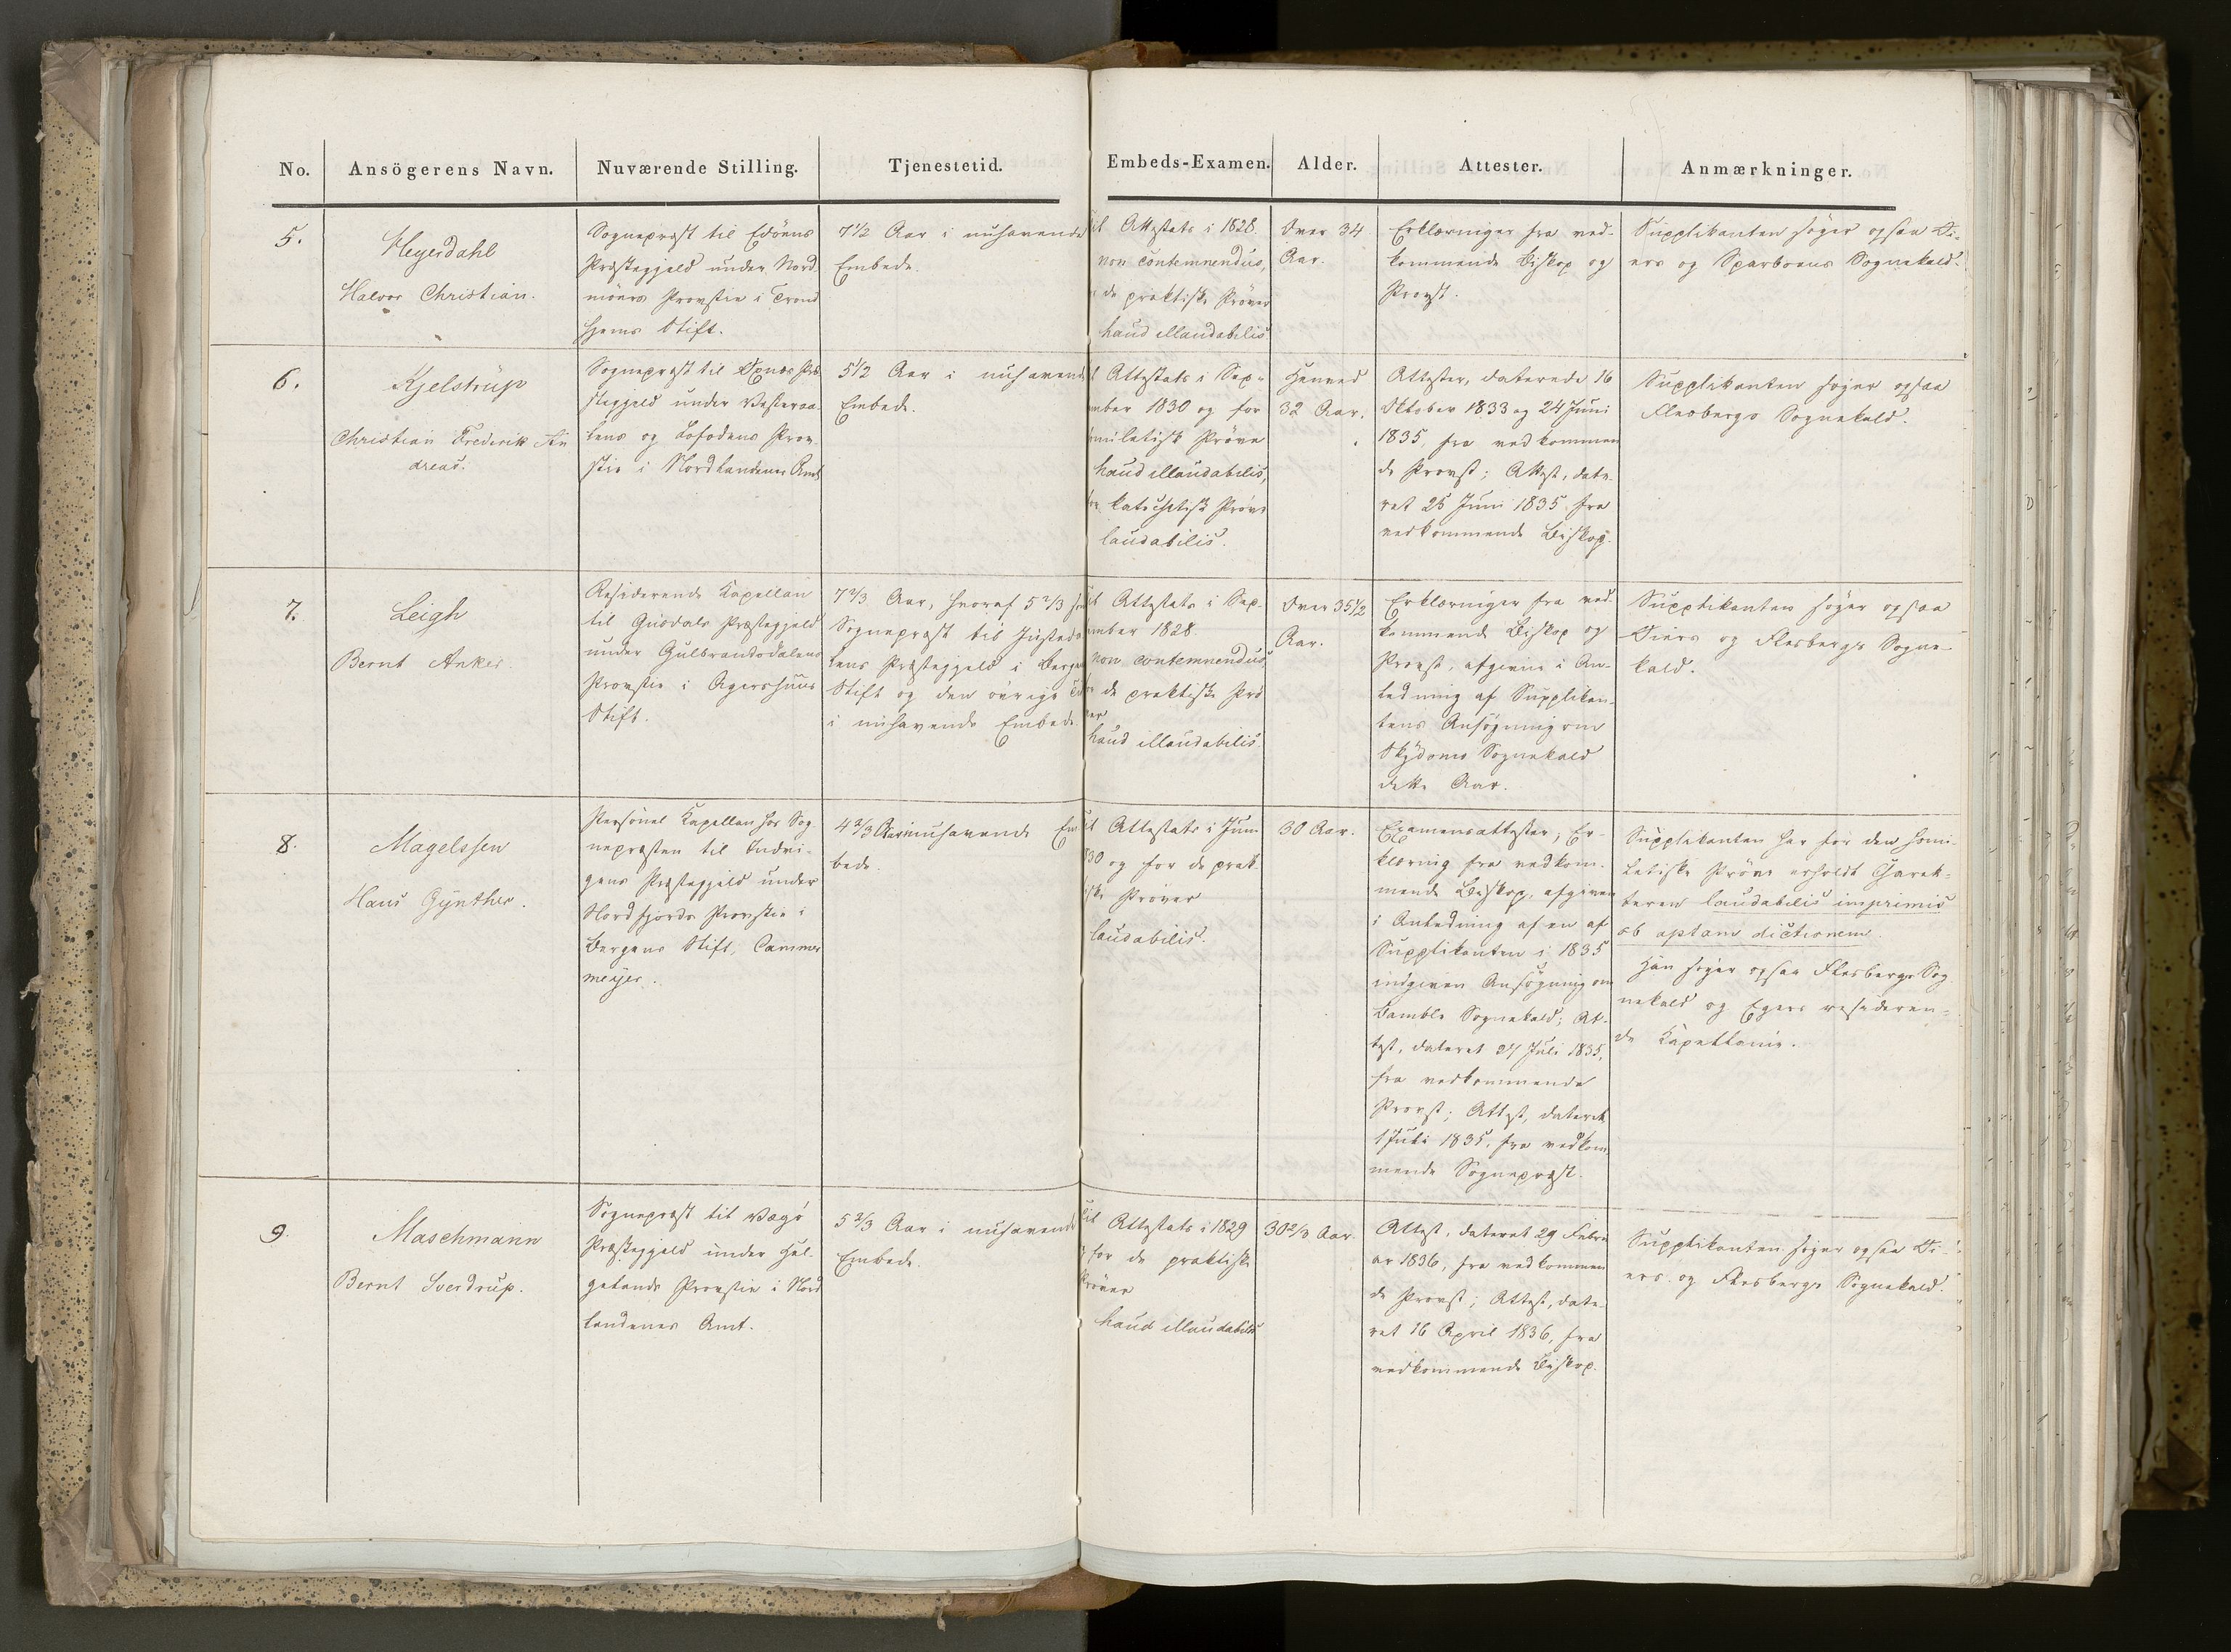 No.
Ansögerens Navn.
Nuværende Stilling.
Tjenestetid.
Embeds-Examen.
Alder.
Attester.
Anmærkninger.
5.
Heyerdahl
Halvor Christian.
Sognepræst til Edöens
Præstegjeld under Nord
möers Provstie i Trond
hjems Stift.
7½ Aar i nuhavende
Embede.
Attestats i 1828.
non contemnendus,
de praktiske Pröver
haud illaudabilis
Over 34
Aar.
Erklæringer fra ved-
kommende Biskop og
Provst.
Supplikanten søger ogsaa Ei-
ers og Sparboens Sognekald.
6.
Kjelstrup
Christian Frederik An
dreas.
Sognepræst til Öxnes Præ
stegjeld under Vesteraa-
lens og Lofodens Prov-
stie i Nordlandenes Amt
5½ Aar i nuhavende
Embede.
Attestats i Sep-
mber 1830 og for
miletisk Pröve
haud illaudabilis,
katechetisk Pröve
laudabilis.
Henved
32 Aar.
Attester, daterede 16
Oktober 1833 og 24 Juni
1835, fra vedkommen
de Provst; Attest, date-
ret 25 Juni 1835 fra
vedkommende Biskop.
Supplikanten søger ogsaa
Flesbergs Sognekald.
7.
Leigh
Bernt Anker.
Residerende Kapellan
til Gusdals Præstegjeld
under Gulbrandsdalens
Provstie i Agershuus
Stift.
7⅔ Aar, hvoraf 5⅔ som
Sognepræst til Justeda
lens Præstegjeld i Bergens
Stift og den övrige Tid
i nuhavende Embede.
Attestats i Sep-
mber 1828.
non contemnendus,
de praktiske Prö
ver
haud illaudabilis.
Over 35½
Aar.
Erklæringer fra ved-
kommende Biskop og
Provst, afgivne i An-
ledning af Supplikan-
tens Ansøgning om
Skydsmo Sognekald
dette Aar.
Supplikanten søger ogsaa
Eiers og Flesbergs Sogne-
kald.
8.
Magelssen
Hans Gynther.
Personel Kapellan hos Sog
nepræsten til Indvi-
gens Præstegjeld under
Nordfjords Provstie i
Bergens Stift, Cammer
meyer.
4⅔ Aar i nuhavende Em
bede.
Attestats i Juni
30 og for de prak-
ske Pröver
laudabilis.
30 Aar.
Examensattester, Er-
klæring fra vedkom-
mende Biskop, afgiven
i Anledning af en af
Supplikanten i 1835
indgiven Ansøgning om
Bamble Sognekald; At-
test, dateret 27 Juli 1835,
fra vedkommende
Provst; Attest, dateret
1 Juli 1835, fra vedkom
mende Sognepræst.
Supplikanten har for den homi-
letiske Pröve erholdt Charak-
teren laudabilis imprimis
ob aptam dictionem.
Han søger ogsaa Flesbergs Sog
nekald og Egers resideren-
de Kapellanie.
9.
Maschmann
Bernt Sverdrup.
Sognepræst til Vegö
Præstegjeld under Hel-
gelands Provstie i Nord
landenes Amt.
5⅔ Aar i nuhavende
Embede.
Attestats i 1829
for de praktiske
Pröver
haud illaudabilis
30⅔ Aar.
Attest, dateret 29 Febru
ar 1836, fra vedkommen
de Provst; Attest, date-
ret 16 April 1836, fra
vedkommende Biskop.
Supplikanten søger ogsaa Ei-
ers og Flesbergs Sognekald.